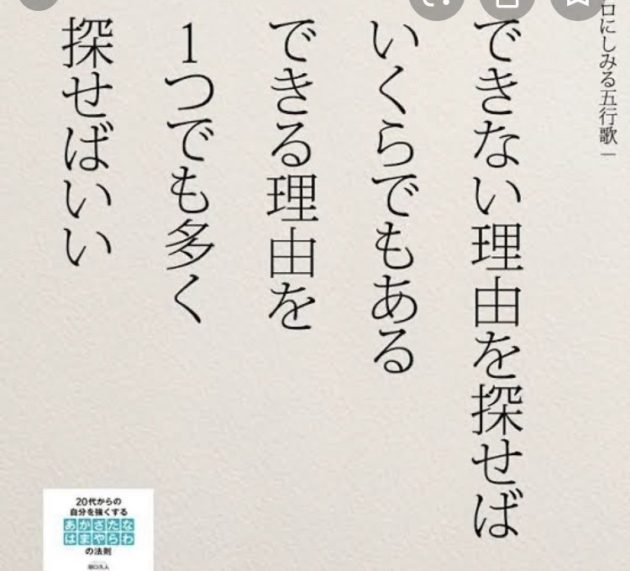 ロにしみる五行歌
できない理由を探せば
いくらでもある
できる理由を
1つでも多く
探せばいい
20代からの
自分を強くする
あかさたな
はまやらわ
の法則